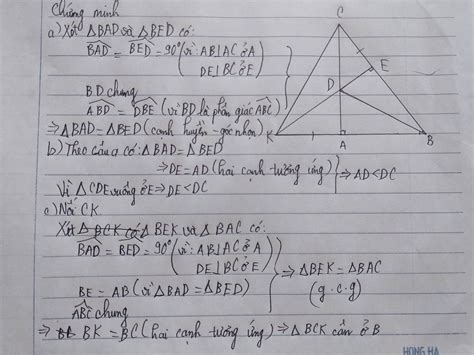 Chứng minh
a) Xét ΔBAD và ΔBED có:
BAD = BED = 90° (vì: AB⊥AC ở A
DE⊥BC ở E)
BD chung
ABD = DBE (vì BD là phân giác ABC)
⇒ ΔBAD = ΔBED (cạnh huyền - góc nhọn)
b) Theo câu a có: ΔBAD = ΔBED
⇒ DE = AD (hai cạnh tương ứng) ⇒ AD < DC
Vì ΔCDE vuông ở E ⇒ DE < DC
c) Nối CK.
Xét ΔBCK có ΔBEK và ΔBAC có:
BAD = BED = 90° (vì: AB⊥AC ở A
DE⊥BC ở E)
⇒ ΔBEK = ΔBAC
BE = AB (vì ΔBAD = ΔBED)
(g.c.g)
ABC chung
⇒ BK = BC (hai cạnh tương ứng) ⇒ ΔBCK cân ở B
C
E
D
K
A
B
HONG HA